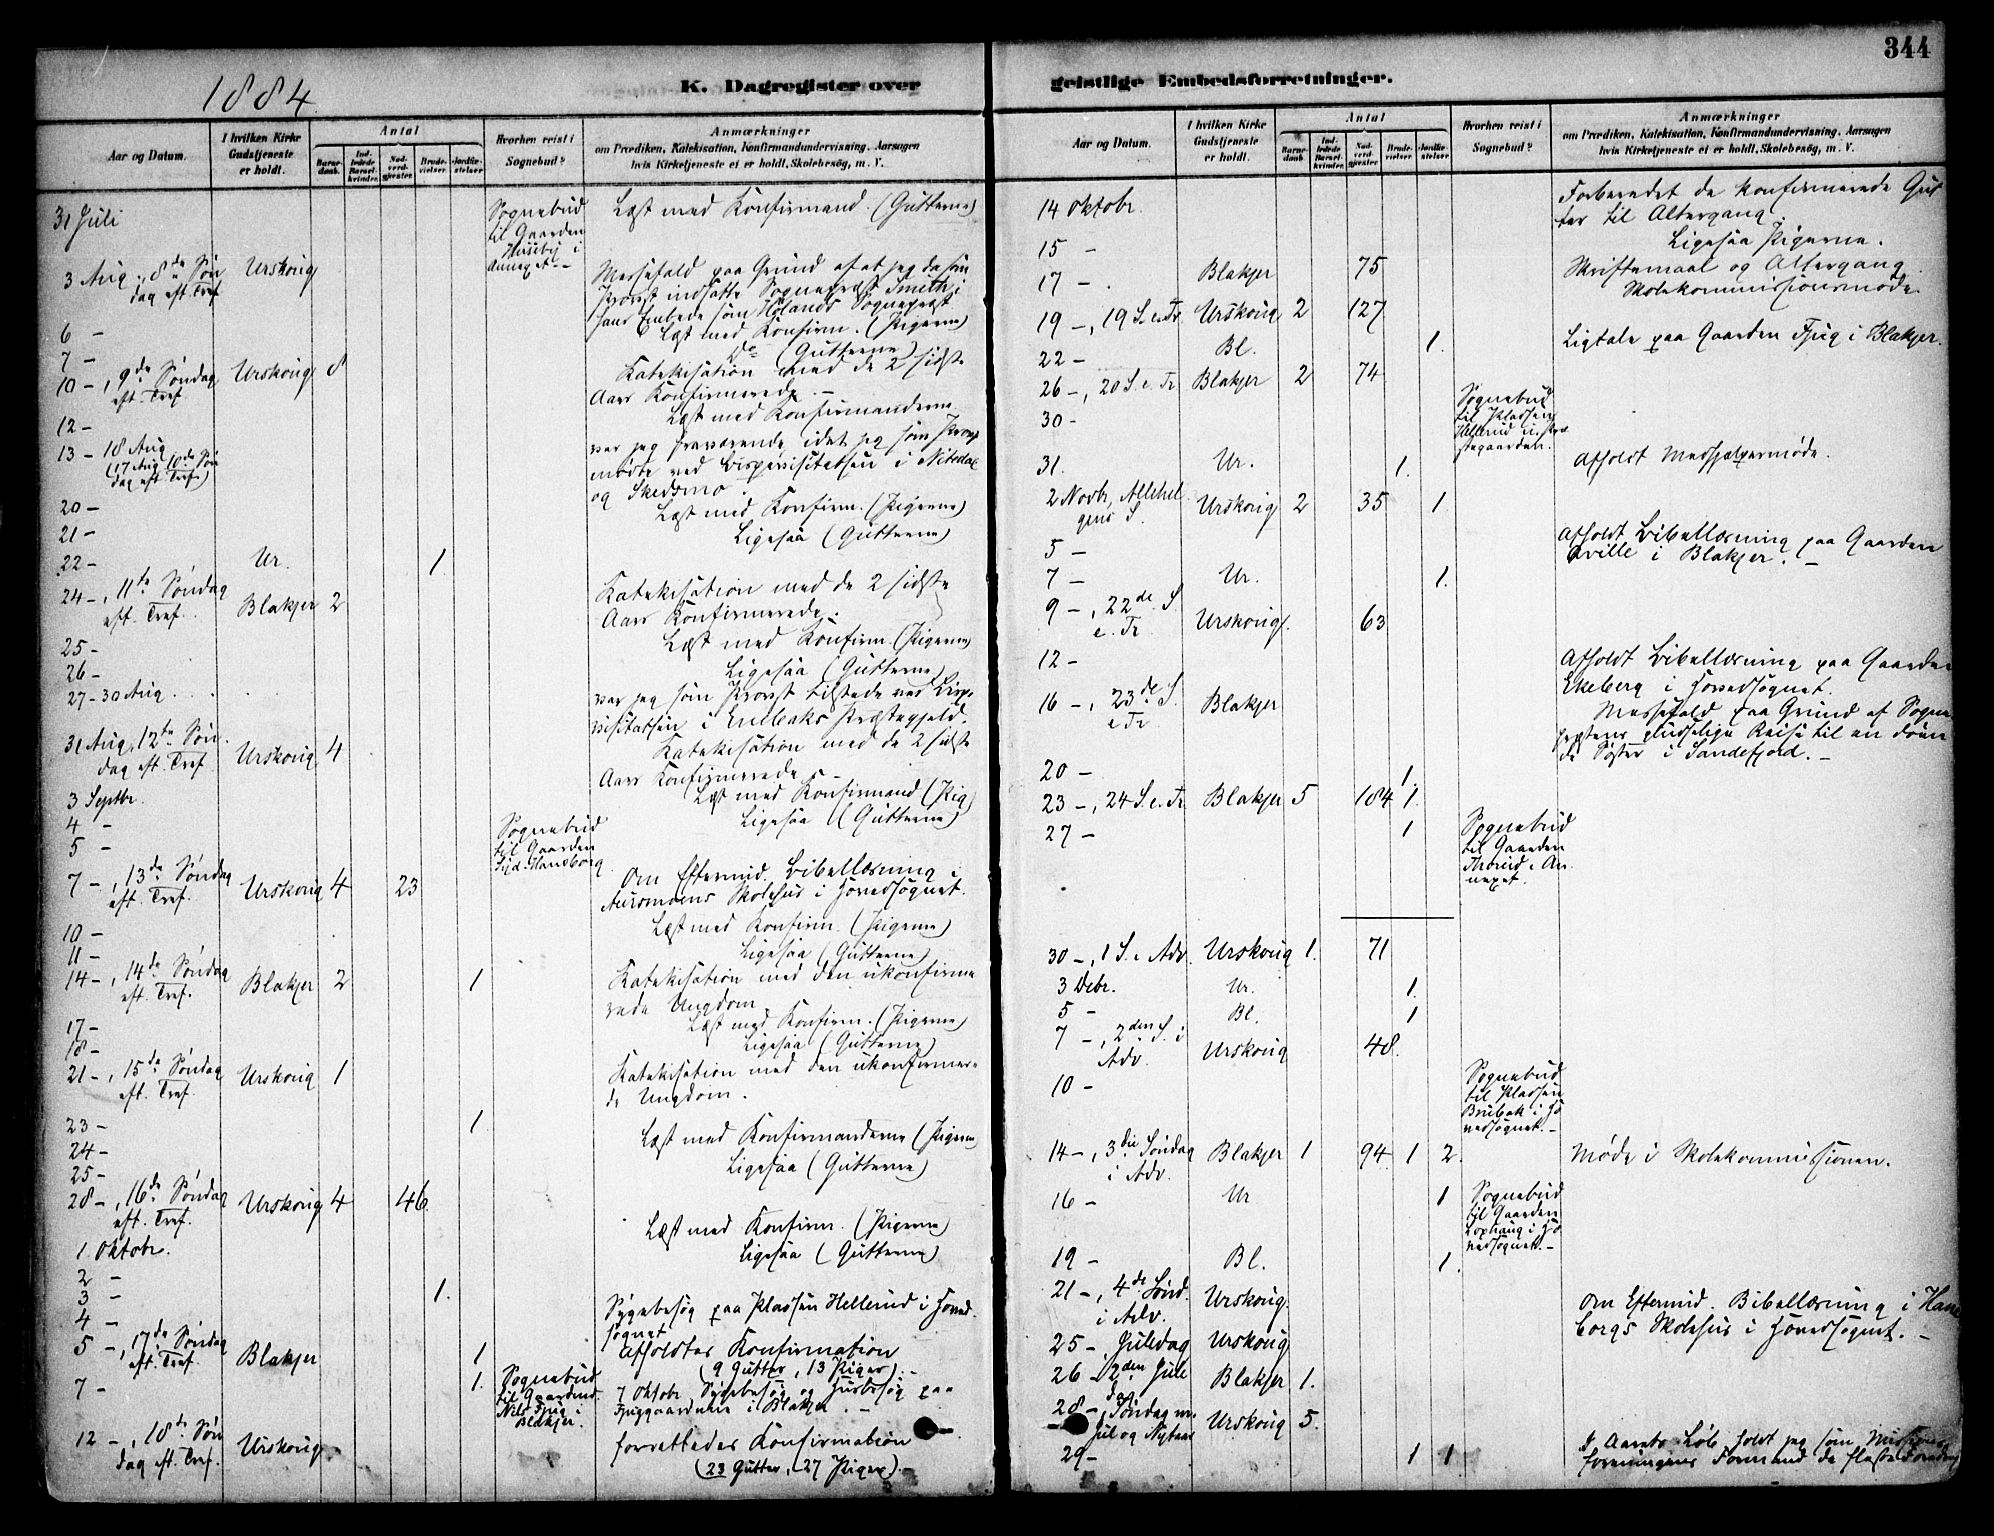 1884
K. Dagregister over
Aar og Datum.
I hvilken Kirke Gudstjeneste er holdt.
Antal
Barnedaab.
Indledede Barselkvinder.
Nadverdgjester.
Brudevielser.
Jordfæstelser
Hvorhen reist i Sognebud?
Anmærkninger
om Prædiken, Katekisation, Konfirmandundervisning, Aarsagen
hvis Kirketjeneste ei er holdt, Skolebesøg, m. V.
31 Juli Sognebud til Gaarden Huseby i Annexet - Læst med Konfirmand. (Gutterne)
3 Aug., 8de Søndag eft. Tref. Urskoug Messefald paa Grund af at jeg da som
Provst indsatte Sognepræst Smith i
hans Embede som Hølands Sognepræst
6 - Læst med Konfirm. (Pigerne)
7 - Do (Gutterne)
10 -, 9de Søndag eft. Tref. Urskoug 8 Katekisation med de 2 sidste
Aars Konfirmerede. -
12 - Læst med Konfirmanderne
13 - 18 Aug (17 Aug 10de Søndag eft. Tref.) var jeg fraværende, idet jeg som Provst
mødte ved Bispevisitatsen i Nitedal
og Skedsmo.
20 - Læst med Konfirm. (Pigerne)
21 - Ligesaa (Gutterne)
22 - Ur. 1.
24 -, 11te Søndag eft. Tref. Blakjer 2 Katekisation med de 2 sidste
Aars Konfirmerede.
25 - Læst med Konfirm. (Pigerne)
26 - Ligesaa (Gutterne)
27 - 30 Aug. var jeg som Provst tilstede ved Bispe-
visitatsen i Enebaks Præstegjeld.
31 Aug, 12te Søndag eft. Tref. Urskoug 4 Katekisation med de 2 sidste
Aars Konfirmerede -
3 Septbr. Læst med Konfirmand (Pig)
4 - Ligesaa (Gutterne)
5 - Sognebud til Gaarden Haneborg
7 -, 13de Søndag eft. Tref. Urskoug 4 23 Om Eftermid. Bibellæsning i
Aursmoens Skolehus i Hovedsognet.
10 - Læst med Konfirm. (Pigerne)
11 - Ligesaa (Gutterne)
14 -, 14de Søndag eft. Tref. Blakjer 2 1 Katekisation med den ukonfirme
rede Ungdom
17 - Læst med Konfirm. (Pigerne)
18 - Ligesaa (Gutterne)
21 -, 15de Søndag eft. Tref. Urskoug 1 Katekisation med den ukonfirmere
de Ungdom.
23 - 1.
24 - Læst med Konfirmanderne (Pigerne)
25 - Ligesaa (Gutterne)
28 -, 16de Søndag eft. Tref. Urskoug 4 46.
1 Oktobr. Læst med Konfirm. (Pigerne)
2 - Ligesaa (Gutterne)
3 - 1.
4 - Sygebesøg paa Pladsen Hellerud i Hoved-
sognet
5 -, 17de Søndag eft. Tref. Blakjer 1 Afholdtes Konfirmation
(9 Gutter, 13 Piger). -
7 - 1. Sognebud til Gaarden Nils Fjug i Blakjer. 7 Oktobr. Sygebesøg og Husbesøg paa
Fjuggaardene i Blakjer. -
12 -, 18de Søndag eft. Tref. Urskoug forrettedes Konfirmation
(23 Gutter, 27 Piger). -
344
geistlige Embedsforretninger.
Aar og Datum.
I hvilken Kirke Gudstjeneste er holdt.
Antal
Barnedaab.
Indledede Barselkvinder.
Nadverdgjester.
Brudevielser.
Jordfæstelser.
Hvorhen reist i Sognebud?
Anmærkninger
om Prædiken, Katekisation, Konfirmandundervisning, Aarsagen
hvis Kirketjeneste ei er holdt, Skolebesøg, m. V.
14 Oktobr. Forberedet de konfirmerede Gut
ter til Altergang.
15 - Ligesaa Pigerne.
17 - Blakjer 75 Skriftemaal og Altergang.
Skolekommissionsmøde.
19 -, 19 S.e.Tr. Urskoug 2 127
22 - Bl. 1. Ligtale paa Gaarden Fjug i Blakjer.
26 -, 20 S.e.Tr. Blakjer 2 74
30 - Sognebud til Pladsen Hellerud u. Præstegaarden.
31. Ur. 1. Afholdt Medhjælpermøde.
2 Novbr, Allehelgens S. Urskoug 2 35 1
5 - Afholdt Bibellæsning paa Gaarden
Kville i Blakjer. -
7 - Ur. 1.
9 -, 22de S. e. Tr. Urskoug. 63
12 - Afholdt Bibellæsning paa Gaarden
Ekeberg i Hovedsognet.
16 -, 23de S. e Tr Blakjer Messefald paa Grund af Sogne
præstens pludselige Reise til en døen
de Søster i Sandefjord. -
20 - 1.
23 -, 24 S.e.Tr. Blakjer 5 104 1.
27 - 1 Sognebud til Gaarden Thorud i Annexet.
30 -, 1 S. i Adv. Urskoug 1. 71
3 Debr. Ur. 1.
5 - Bl. 1
7 -, 2den S. i Adv. Urskoug 48.
10 - Sognebud til Pladsen Brubak i Hovedsognet. -
14 -, 3die Søndag i Adv. Blakjer 1 94 1 2. Møde i Skolekommissionen.
16 - Ur 1 Sognebud til Gaarden Lophaug i Hovedsognet. -
19 - Bl. 1.
21 -, 4de Sønd. i Adv. Urskoug. Om Eftermid. Bibellæsning i Hane
borgs Skolehus i Hovedsognet. -
25 -, Juledag Urskoug
26 - 2den Juledag Blakjer 1.
28 -, Søndag m. Jul og Nytaar Urskoug 5.
29 - 1 1 I Aarets Løb holdt jeg som Missions
foreningens Formand de fleste Foredrag